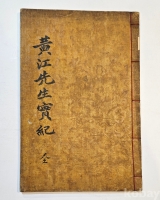 黃江先生實紀
全